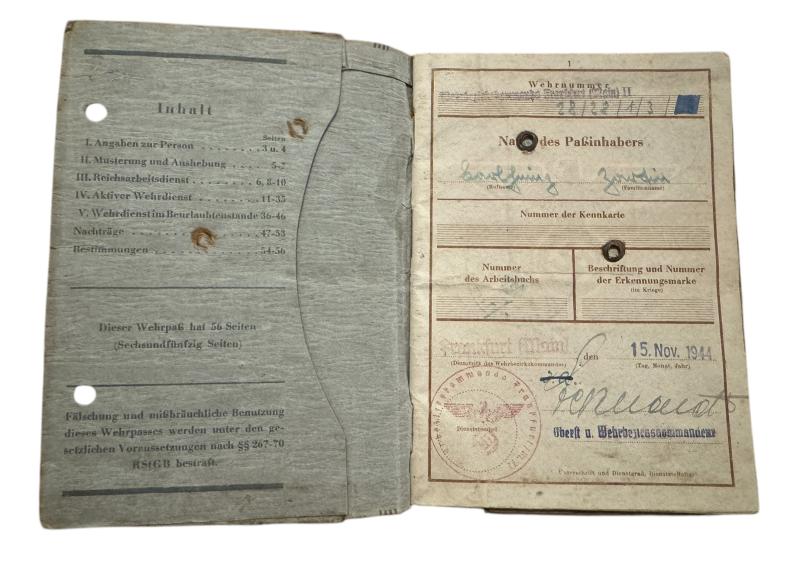 Inhalt
Seiten
I. Angaben zur Person . . . . . . . . 3 u. 4
II. Musterung und Aushebung . . . . 5-7
III. Reichsarbeitsdienst . . . . . . . 6, 8-10
IV. Aktiver Wehrdienst . . . . . . . . 11-35
V. Wehrdienst im Beurlaubtenstande 36-46
Nachträge . . . . . . . . . . . . . . . 47-53
Bestimmungen . . . . . . . . . . . . . 54-56
Dieser Wehrpaß hat 56 Seiten
(Sechsundfünfzig Seiten)
Fälschung und mißbräuchliche Benutzung
dieses Wehrpasses werden unter den ge-
setzlichen Voraussetzungen nach §§ 267-70
RStGB bestraft.
1
Wehrnummer
Frankfurt (Main) II
28/22/1/3/
des Paßinhabers
Karlheinz
(Rufname) (Familienname)
Nummer der Kennkarte
Nummer
des Arbeitsbuchs
Beschriftung und Nummer
der Erkennungsmarke
(im Kriege)
Frankfurt (Main) den 15. Nov. 1944
(Dienstsitz des Wehrbezirkskommandos) (Tag, Monat, Jahr)
Dienstsiegel
Oberst u. Wehrbezirkskommandeur
(Unterschrift und Dienstgrad, Dienststellung)